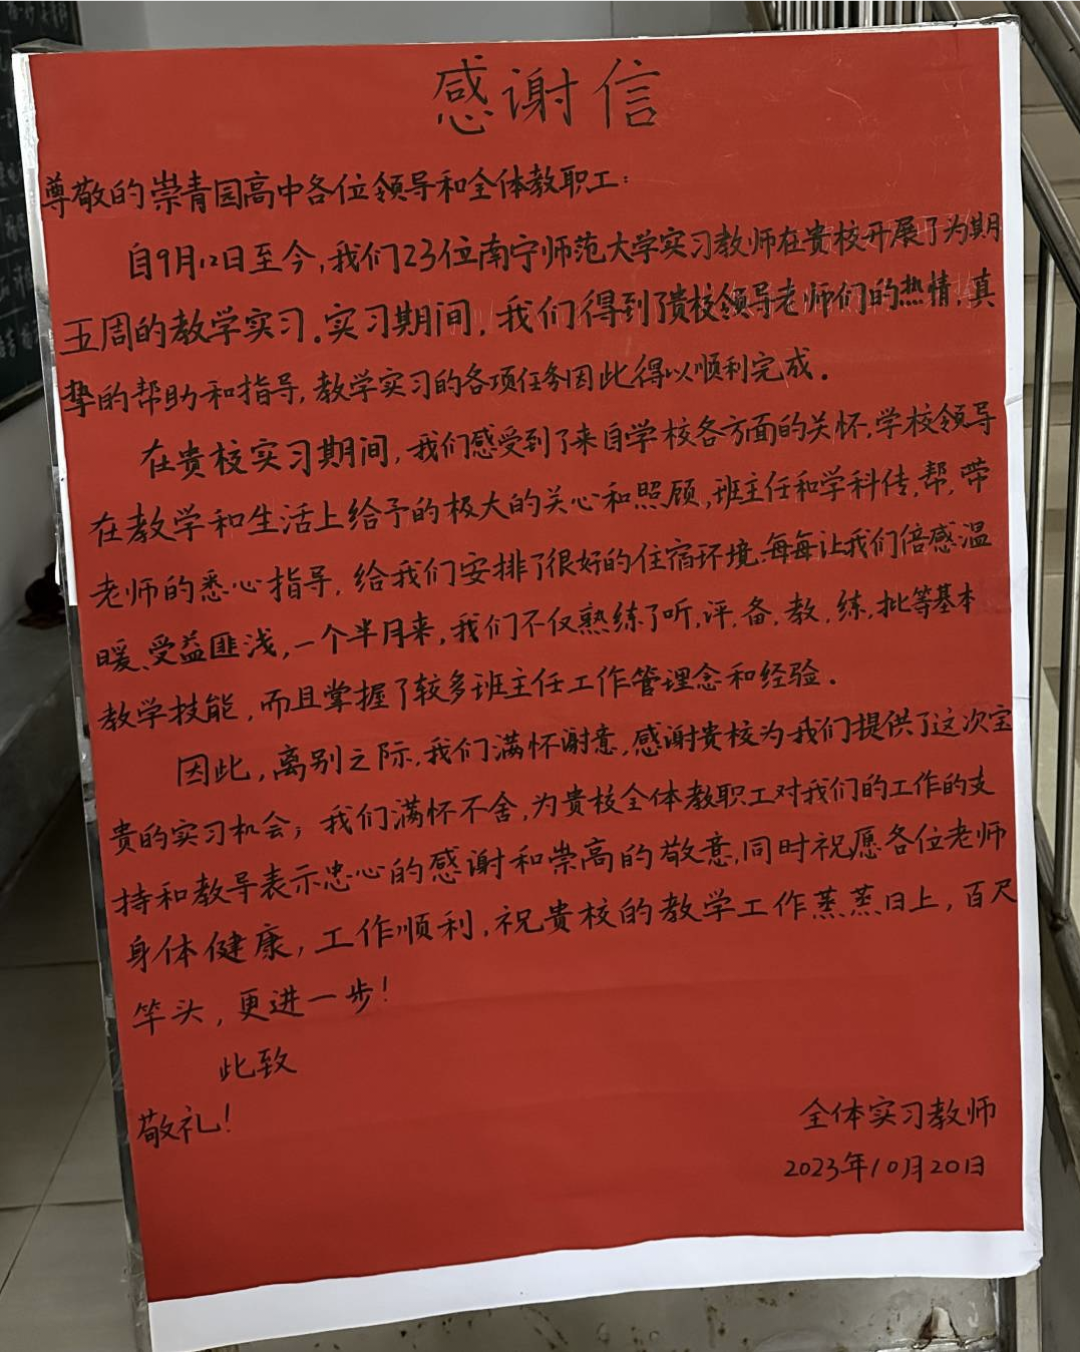 感谢信
尊敬的崇青园高中各位领导和全体教职工：
自9月12日至今，我们23位南宁师范大学实习教师在贵校开展了为期
五周的教学实习。实习期间，我们得到了贵校领导老师们的热情、真
挚的帮助和指导，教学实习的各项任务因此得以顺利完成。
在贵校实习期间，我们感受到了来自学校各方面的关怀，学校领导
在教学和生活上给予的极大的关心和照顾，班主任和学科传，帮，带
老师的悉心指导，给我们安排了很好的住宿环境，每每让我们倍感温
暖、受益匪浅，一个半月来，我们不仅熟练了听，评，备，教，练，批等基本
教学技能，而且掌握了较多班主任工作管理念和经验。
因此，离别之际，我们满怀谢意，感谢贵校为我们提供了这次宝
贵的实习机会；我们满怀不舍，为贵校全体教职工对我们的工作的支
持和教导表示忠心的感谢和崇高的敬意，同时祝愿各位老师
身体健康，工作顺利，祝贵校的教学工作蒸蒸日上，百尺
竿头，更进一步！
此致
敬礼！
全体实习教师
2023年10月20日